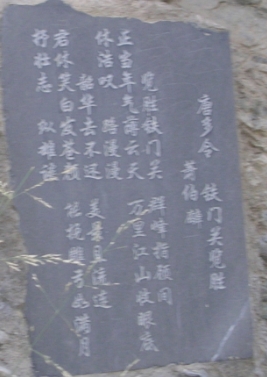 唐多令 铁门关览胜
伯
览胜铁门关 群峰指顾间
万里江山收眼底
正当年气薄云天
休浩叹 路漫漫
韶华去不还 美景且流连
能挽雕弓如满月
君休笑白发苍颜
抒壮志 似雄